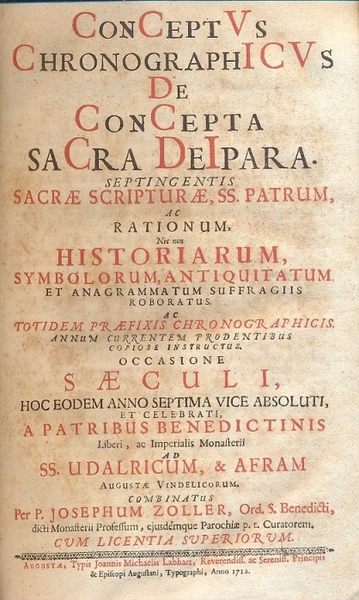 ConCeptVs
ChronographICVs
De
ConCepta
saCra DeIpara.
SEPTINGENTIS
SACRÆ SCRIPTURÆ, SS. PATRUM,
AC
RATIONUM,
Nec non
HISTORIARUM,
SYMBOLORUM, ANTIQUITATUM
ET ANAGRAMMATUM SUFFRAGIIS
ROBORATUS.
AC
TOTIDEM PRÆFIXIS CHRONOGRAPHICIS,
ANNUM CURRENTEM PRODENTIBUS
COPIOSE INSTRUCTUS.
OCCASIONE
SÆCULI,
HOC EODEM ANNO SEPTIMA VICE ABSOLUTI,
ET CELEBRATI,
A PATRIBUS BENEDICTINIS
Liberi, ac Imperialis Monasterii
AD
SS. UDALRICUM, & AFRAM
AUGUSTÆ VINDELICORUM.
COMBINATUS
Per P. JOSEPHUM ZOLLER, Ord. S. Benedicti,
dicti Monasterii Professum, ejusdémque Parochiæ p. t. Curatorem,
CUM LICENTIA SUPERIORUM.
AUGUSTÆ, Typis Joannis Michaelis Labhart, Reverendiss. ac Sereniss. Principis
& Episcopi Augustani, Typographi, Anno 1712.